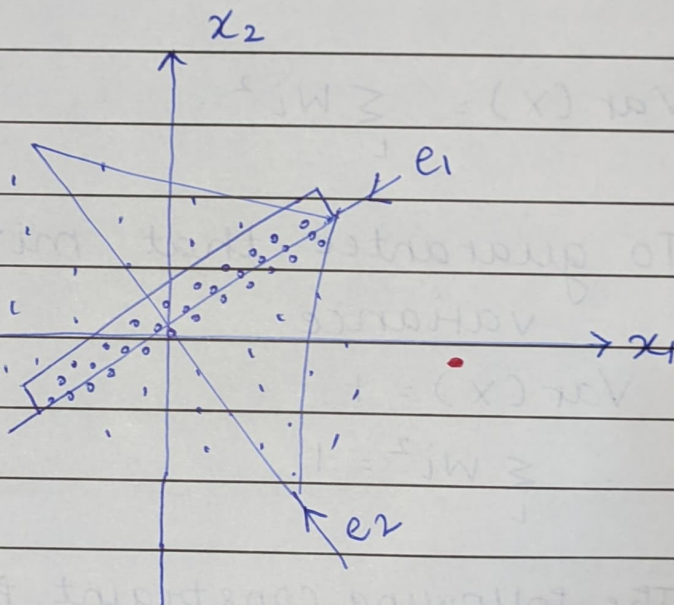 x2
e1
x1
e2